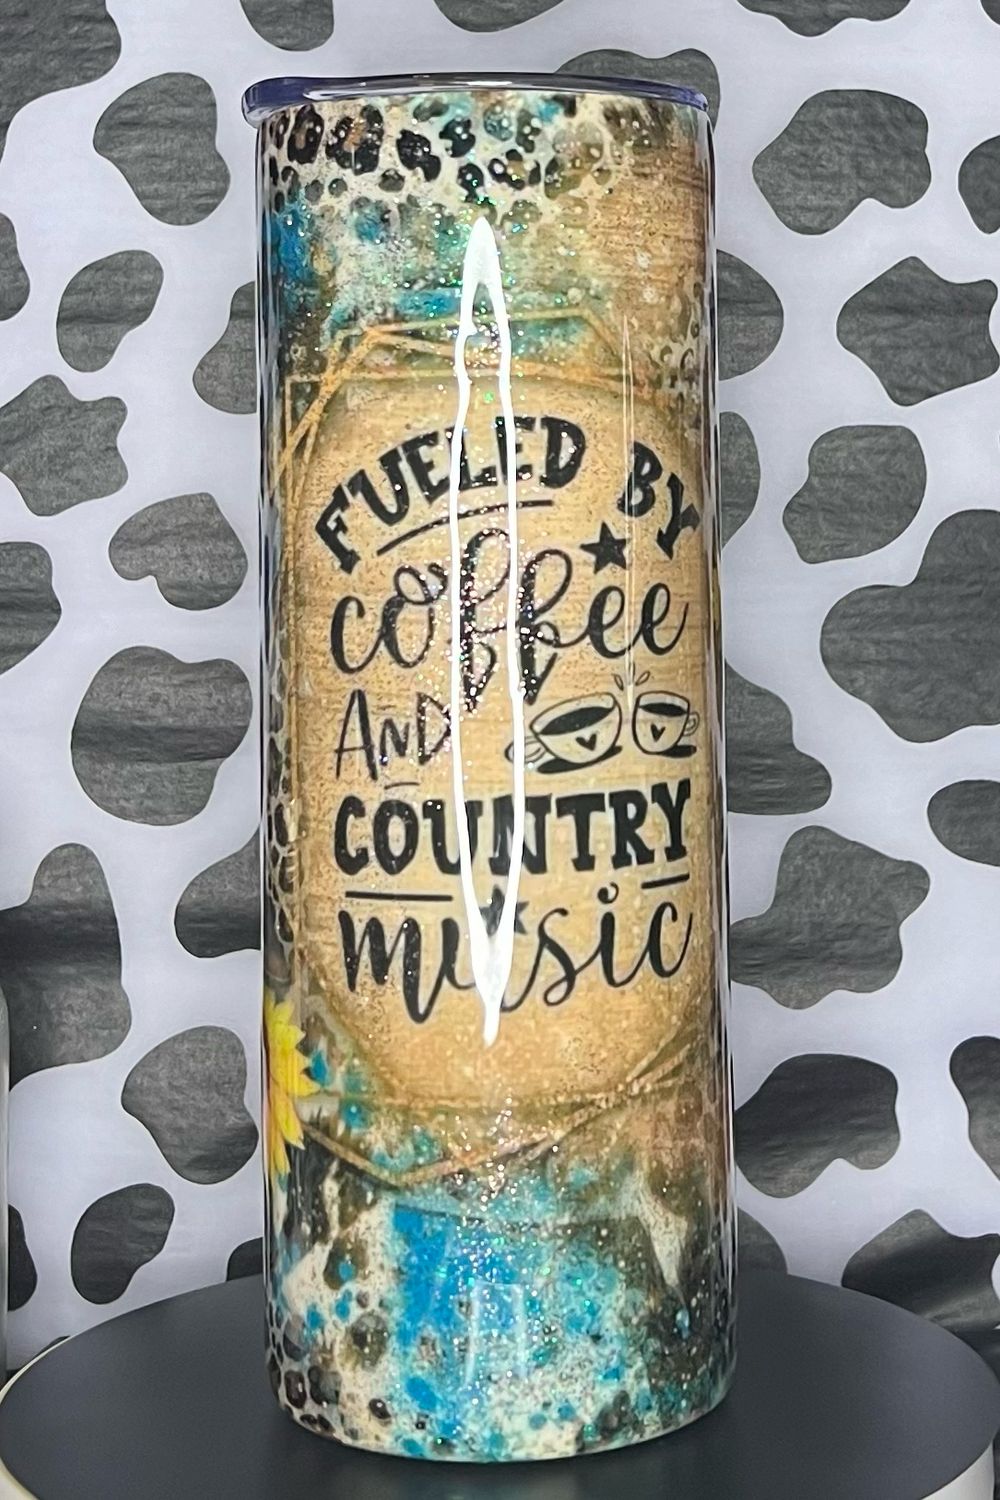 FUELED BY
coffee
AND
COUNTRY
music